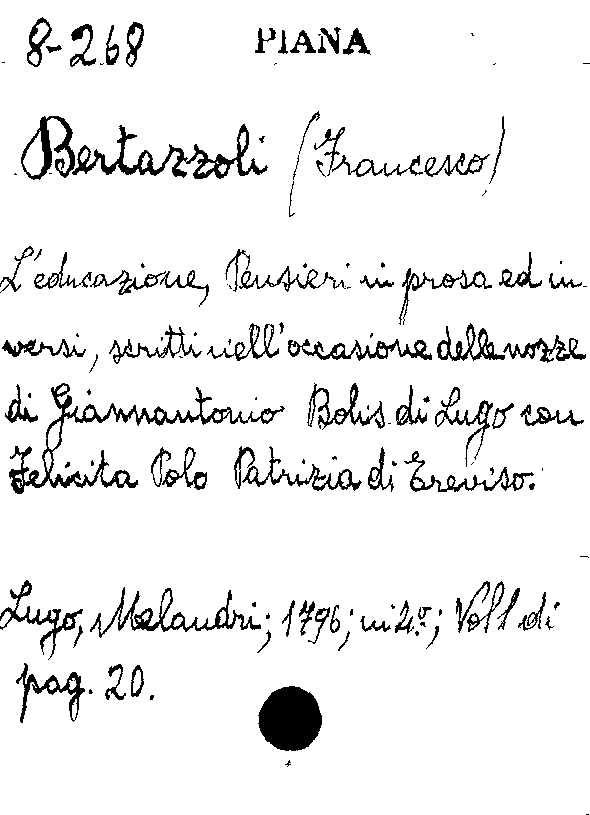 8-268 PIANA
Bertazzoli (Francesco)
L'educazione, Pensieri in prosa ed in
versi, scritti nell'occasione delle nozze
di Giannantonio Bolis di Lugo con
Felicita Polo Patrizia di Treviso.
Lugo, Melandri; 1796; in 4º; Vol 1 di
pag. 20.